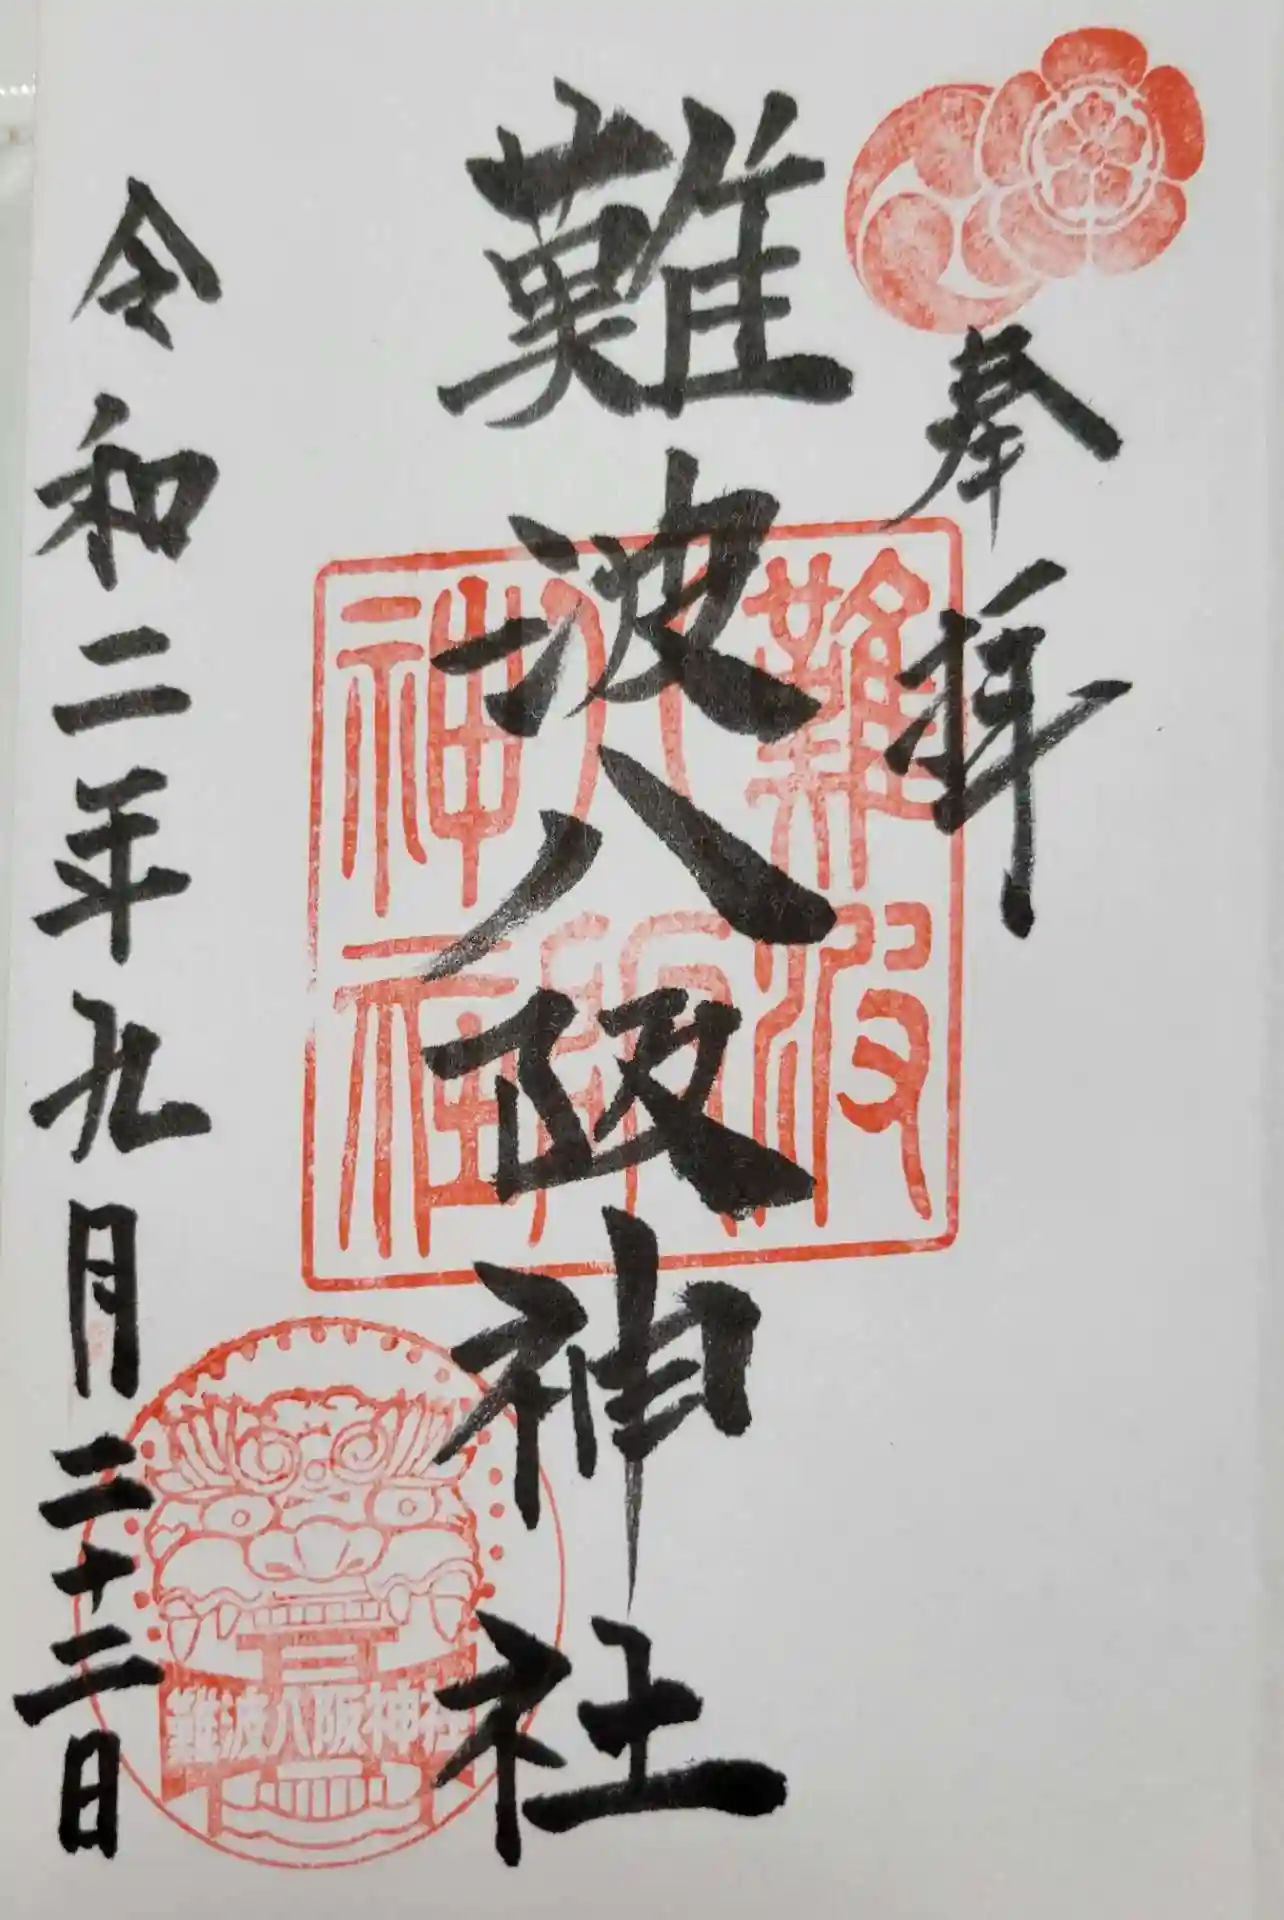 奉拝
難波八阪神社
難波八阪神社
令和二年九月二十二日
難波八阪神社